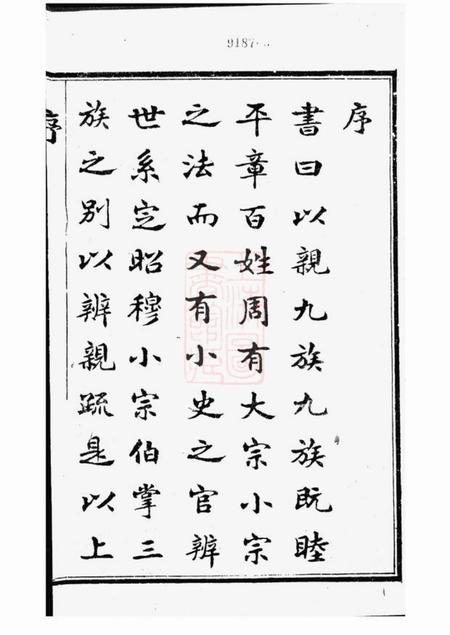 9187
序
書曰以親九族九族既睦
平章百姓周有大宗小宗
之法而又有小史之官辨
世系定昭穆小宗伯掌三
族之別以辨親疏是以上
序